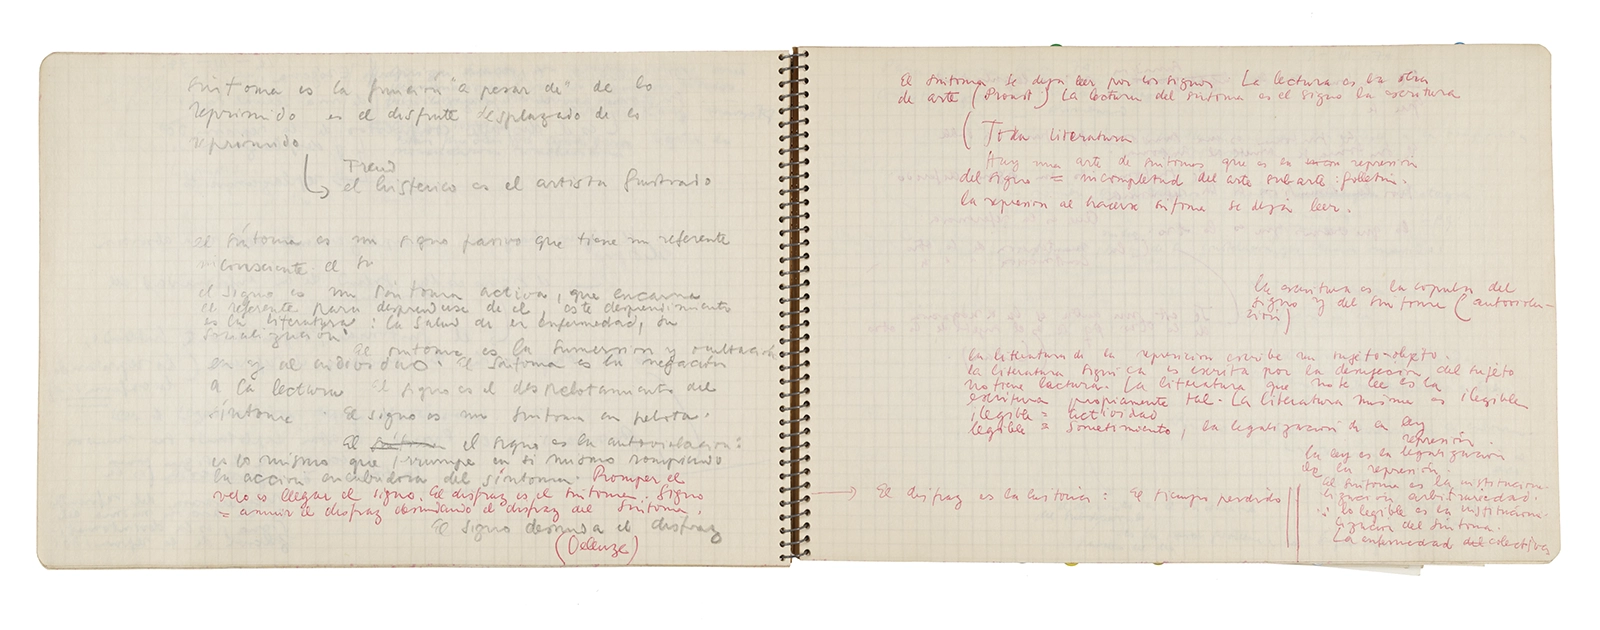 síntoma es la función "a pesar de" de lo
reprimido es el disfrute desplazado de lo
reprimido
Freud
el histérico es el artista frustrado
el síntoma es un signo pasivo que tiene un referente
inconsciente. el
el signo es un síntoma activo, que encarna
el referente para desprenderse de él, este desprendimiento
es la literatura: la salud de
socialización.
El síntoma es la sumersión y ocultación
en y al individuo. El síntoma es la negación
a la lectura El signo es el despelotamiento del
síntoma. El signo es un síntoma en pelota.
El síntoma el signo es la autoviolación:
es lo mismo que irrumpe en si mismo rompiendo
la acción encubadora del síntoma. Romper el
velo es llegar al signo. El disfraz es el síntoma. Signo
= asumir el disfraz desnudando el disfraz del síntoma.
El signo desnuda el disfraz
(Deleuze)
El síntoma se deja leer por los signos La lectura es la obra
de arte (Proust) La lectura del síntoma es el signo la escritura
( Toda literatura
Hay un arte de síntomas que es en represión
del signo = incompletud del arte subarte:
la represión al hacerse síntoma se deja leer.
la escritura es la copula del
signo y del síntoma (autoviola-
ción)
la literatura de la represión escribe un sujeto-objeto.
la literatura sígnica es escrita por la denegación del sujeto
no tiene lectura. La literatura que no te lee es la
escritura propiamente tal. La literatura misma es ilegible
ilegible = actividad
legible = sometimiento, la legalización de la ley
represión.
la ley es la legalización
de la represión.
El síntoma es la institucion-
lización arbitrariedad.
∴ lo legible es la institucion-
lización del síntoma.
La enfermedad del colectivo
→ El disfraz es la historia: El tiempo perdido